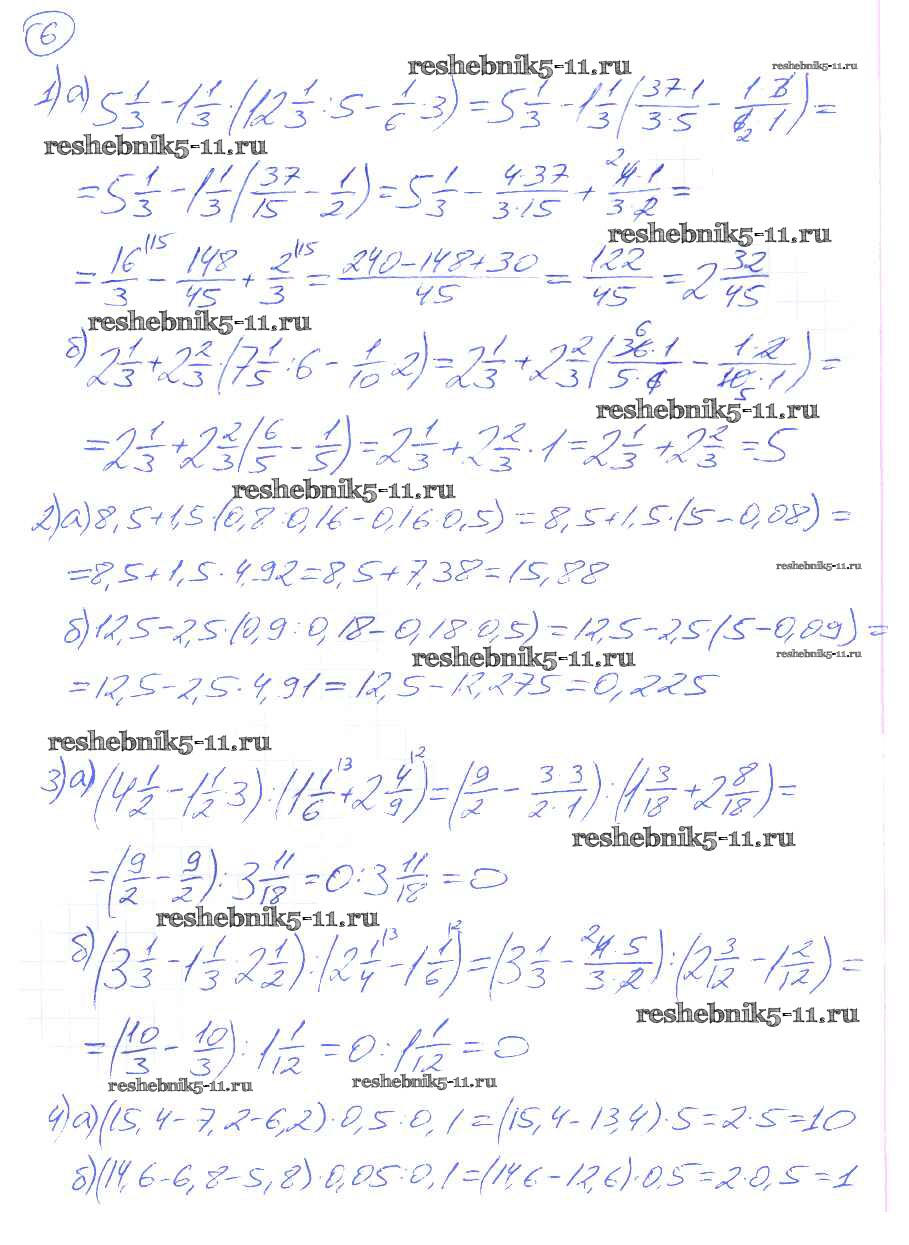 6
reshebnik5-11.ru reshebnik5-11.ru
1) а) 5 1/3 - 1 1/3 · (12 1/3 : 5 - 1/6 · 3) = 5 1/3 - 1 1/3 (37·1/3·5 - 1·3/6·1) =
2
reshebnik5-11.ru
= 5 1/3 - 1 1/3 (37/15 - 1/2) = 5 1/3 - 4·37/3·15 + 4·1/3·2 =
2
reshebnik5-11.ru
= 16/3 |15 - 148/45 + 2/3 |15 = 240-148+30/45 = 122/45 = 2 32/45
reshebnik5-11.ru
б) 2 1/3 + 2 2/3 · (7 1/5 : 6 - 1/10 · 2) = 2 1/3 + 2 2/3 (36·1/5·6 - 1·2/10·1) =
6 5
reshebnik5-11.ru
= 2 1/3 + 2 2/3 (6/5 - 1/5) = 2 1/3 + 2 2/3 · 1 = 2 1/3 + 2 2/3 = 5
reshebnik5-11.ru
2) а) 8,5+1,5·(0,8·0,16-0,16·0,5) = 8,5+1,5·(5-0,08) =
= 8,5+1,5·4,92 = 8,5+7,38 = 15,88
reshebnik5-11.ru
б) 12,5-2,5·(0,9:0,18-0,18·0,5) = 12,5-2,5·(5-0,09) =
reshebnik5-11.ru reshebnik5-11.ru
= 12,5-2,5·4,91 = 12,5-12,275 = 0,225
reshebnik5-11.ru
3) а) (4 1/2 - 1 1/2 · 3) : (1 1/6 |3 + 2 4/9 |2) = (9/2 - 3·3/2·1) : (1 3/18 + 2 8/18) =
reshebnik5-11.ru
= (9/2 - 9/2) : 3 11/18 = 0 : 3 11/18 = 0
reshebnik5-11.ru
б) (3 1/3 - 1 1/3 · 2 1/2) : (2 1/4 |3 - 1 1/6 |2) = (3 1/3 - 4·5/3·2) : (2 3/12 - 1 2/12) =
2
reshebnik5-11.ru
= (10/3 - 10/3) : 1 1/12 = 0 : 1 1/12 = 0
reshebnik5-11.ru reshebnik5-11.ru
4) а) (15,4-7,2-6,2)·0,5·0,1 = (15,4-13,4)·5 = 2·5 = 10
б) (14,6-6,8-5,8)·0,05·0,1 = (14,6-12,6)·0,5 = 2·0,5 = 1